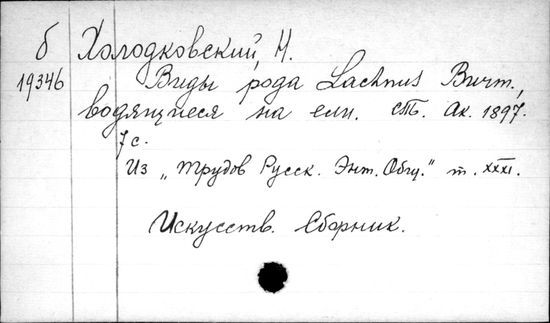 б Холодковский, Н.
19346 Виды рода Lachnus Burm.,
водящиеся на ели. СПб. Ак. 1897.
7 с.
Из „Трудов Русск. Энт. Общ." т. XXXI.
Искусств. Сборник.